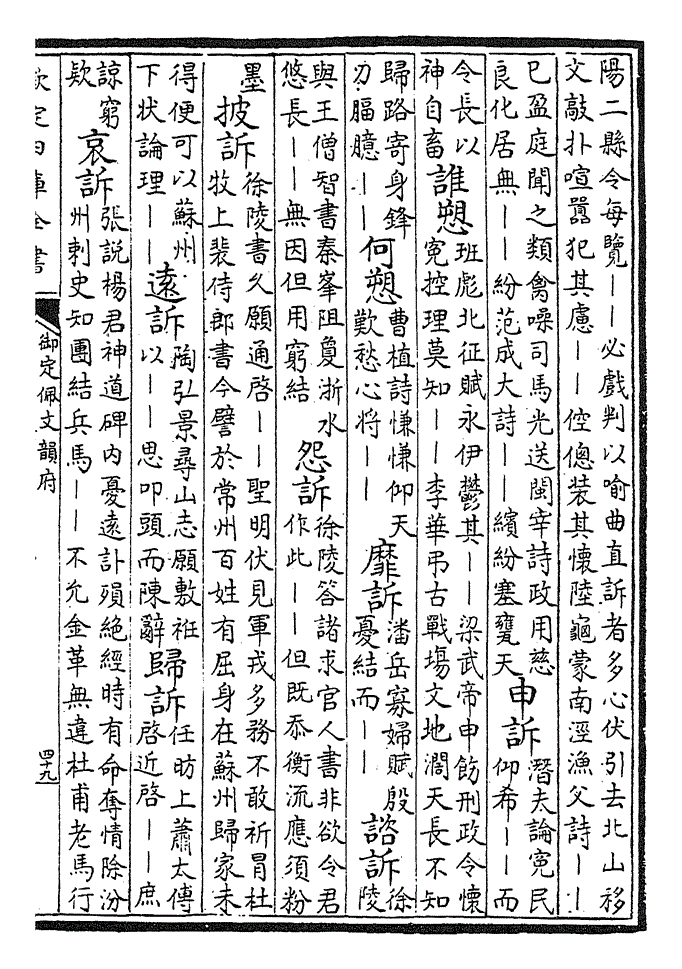 陽二縣令每覽——必戲判以喻曲直訴者多心伏引去北山移
文敲扑喧囂犯其慮——倥傯裝其懷陸龜蒙南涇漁父詩——
已盈庭聞之類禽噪司馬光送閩宰詩政用慈
良化居無——紛范成大詩——繽紛塞甕天
申訴
潛夫論寃民
仰希——而
令長以
神自畜
誰愬
班彪北征賦永伊鬱其——梁武帝申飭刑政令懷
寃控理莫知——李華弔古戰塲文地濶天長不知
歸路寄身鋒
刃腷臆——
何愬
曹植詩慊慊仰天
歎愁心將——
靡訴
潘岳寡婦賦殷
憂結而——
諮訴
徐
陵
與王僧智書秦峯阻敻浙水
悠長——無因但用窮結
怨訴
徐陵答諸求官人書非欲令君
作此——但既忝衡流應須粉
墨
披訴
徐陵書久願通啓——聖明伏見軍戎多務不敢祈冒杜
牧上裴侍郎書今譬於常州百姓有屈身在蘇州歸家未
得便可以蘇州
下状論理——
遠訴
陶弘景尋山志願敷衽
以——思叩頭而陳辭
歸訴
任昉上蕭太傅
啓近啓——庶
諒窮
欵
哀訴
張說楊君神道碑内憂遠訃殞絶經時有命奪情除汾
州刺史知團結兵馬——不允金革無違杜甫老馬行
欽定四庫全書
御定佩文韻府
四十九